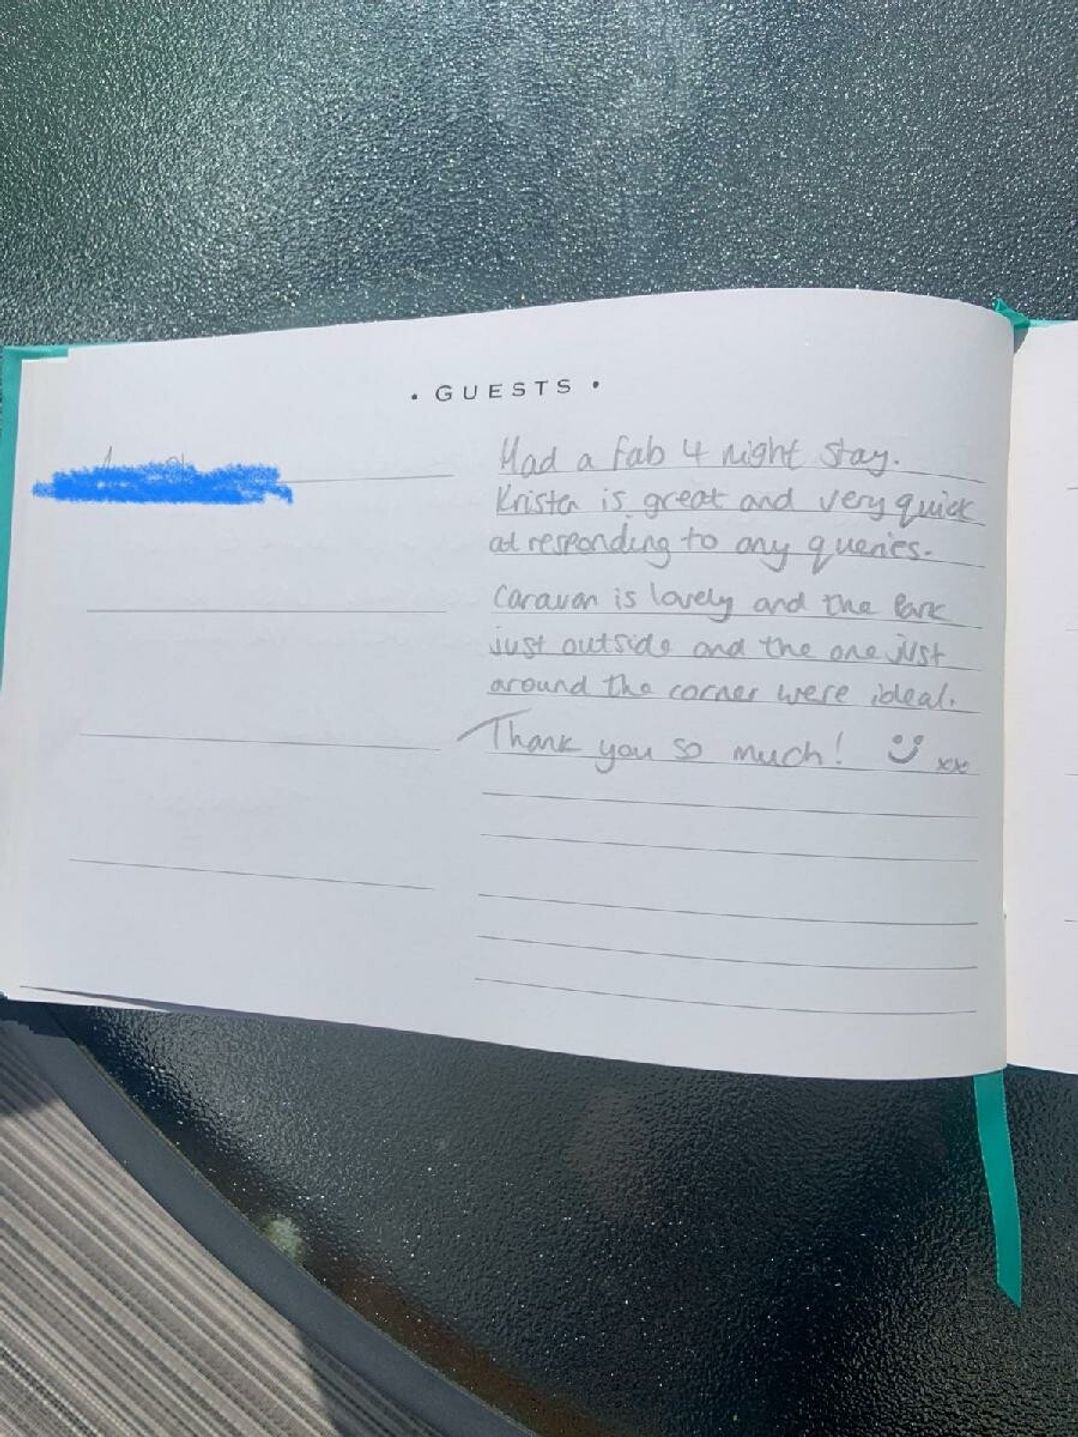 • GUESTS •
Had a fab 4 night stay.
Krista is great and very quick
at responding to any queries.
Caravan is lovely and the Park
just outside and the one just
around the corner were ideal.
Thank you so much! xx